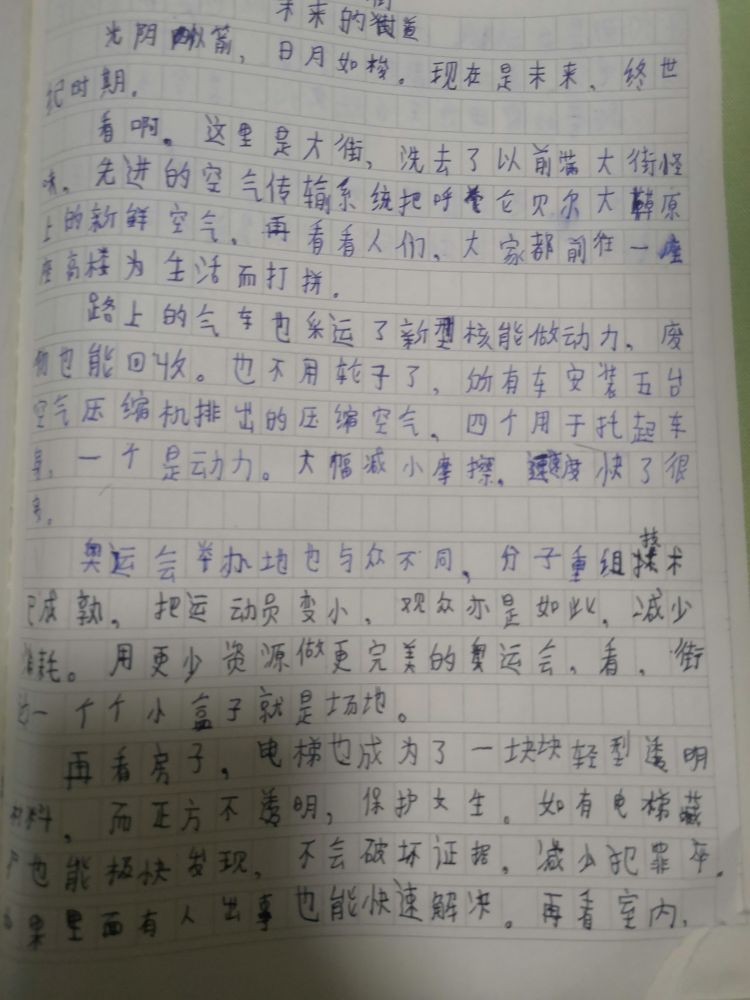 未来的街道
光阴似箭，日月如梭。现在是未来、终世
纪时期。
看啊。这里是大街，洗去了以前满大街怪
味。先进的空气传输系统把呼仑贝尔大草原
上的新鲜空气。再看看人们、大家都前往一座
座高楼为生活而打拼。
路上的气车也采运了新型核能做动力、废
物也能回收。也不用轮子了，所有车安装五台
空气压缩机排出的压缩空气。四个用于托起车
身，一个是动力。大幅减小摩擦。速度快了很
多。
奥运会举办地也与众不同，分子重组技术
已成孰。把运动员变小，观众亦是如此，减少
消耗。用更少资源做更完美的奥运会、看，街
边一个个小盒子就是场地。
再看房子，电梯也成为了一块块轻型透明
材料，而正方不透明，保护女生。如有电梯藏
尸也能极快发现，不会破坏证据，减少犯罪率。
如果里面有人出事也能快速解决。再看室内，